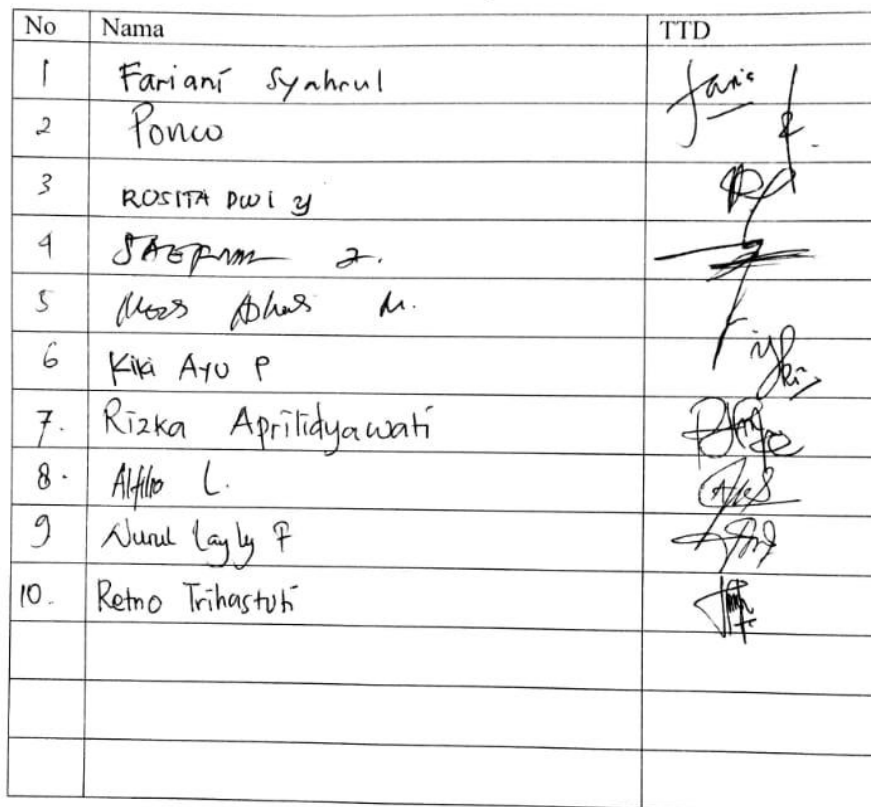 No Nama TTD
1 Fariani Syahrul
2 Ponco
3 ROSITA DWI Y
4
5 M.
6 Kiki AYU P
7. Rizka Aprilidyawati
8. L.
9 Nurul Layly F
10. Retno Trihastuti